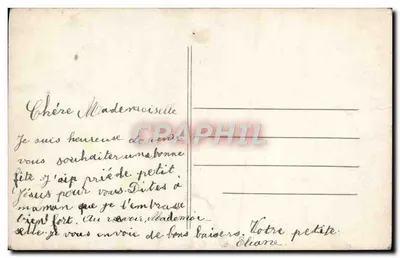 Chère Mademoiselle
Je suis heureuse de vous
vous souhaiter une bonne
fête J'ai prié de petit
Jésus pour vous. Dites à
maman que je l'embrasse
bien fort. Au revoir Mademoi-
selle je vous envoie de bons baisers. Votre petite
Eliane
CPAPHIL